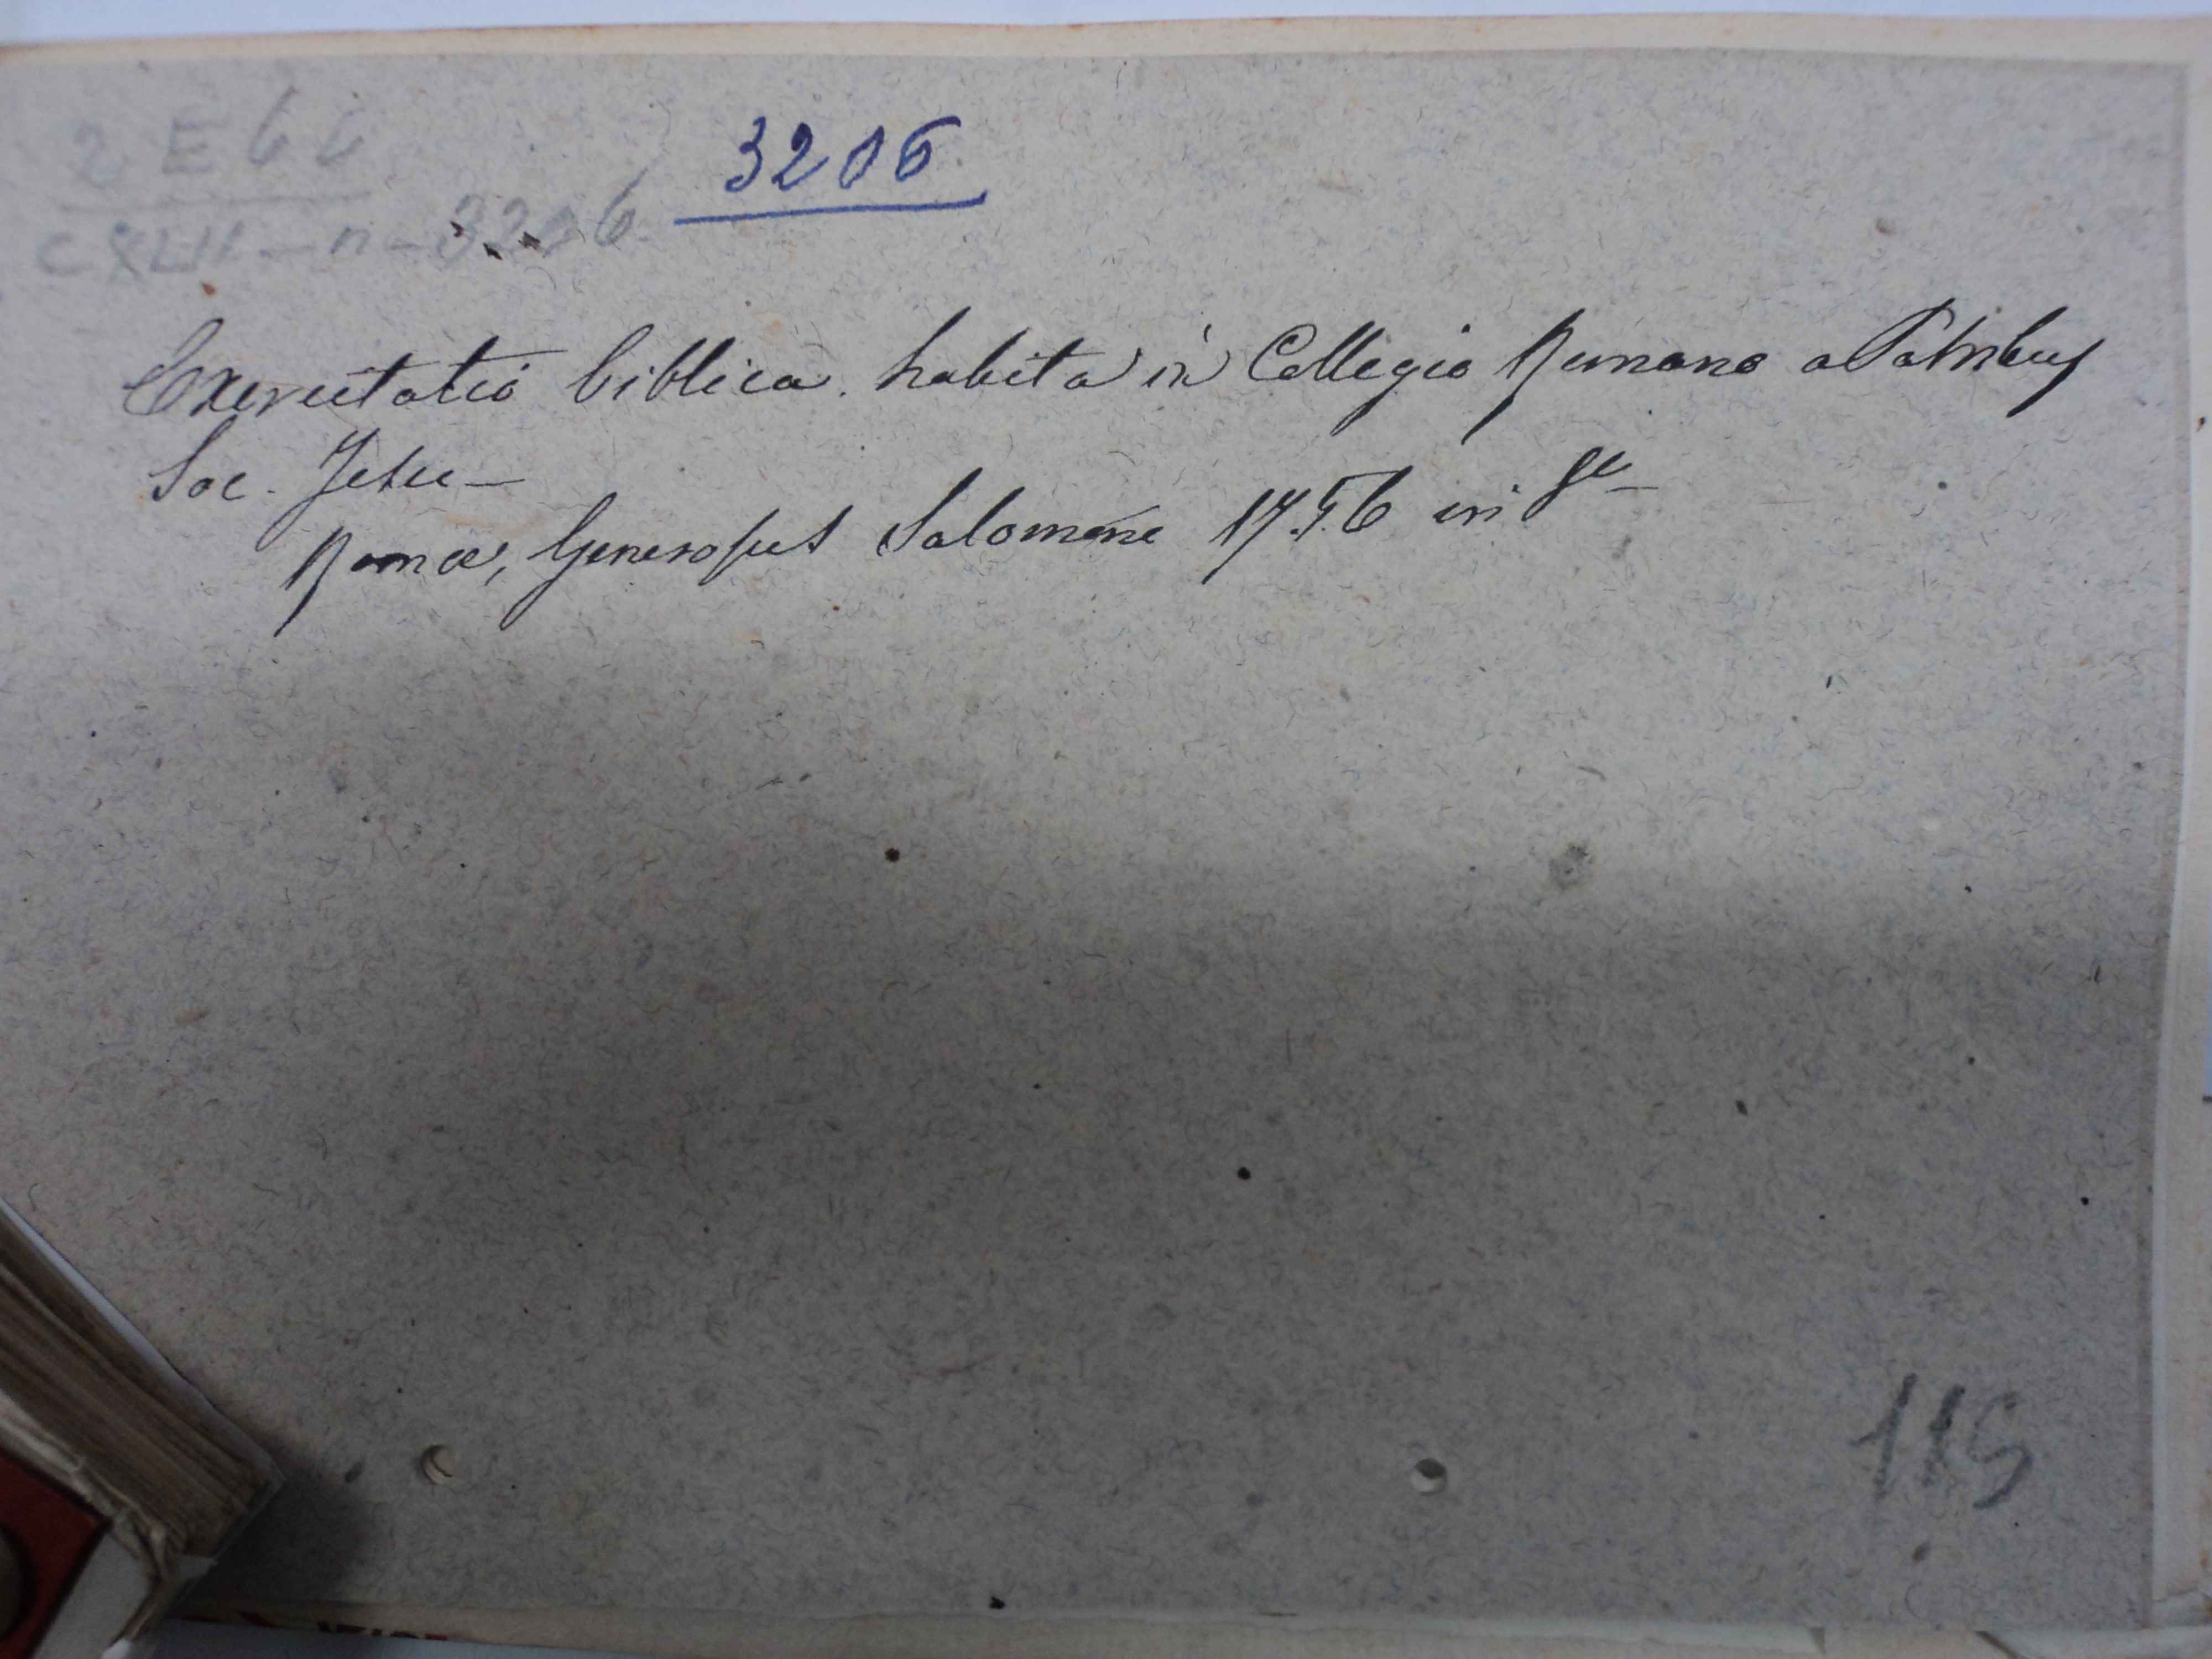 2 E 6 6
CXLII - n - 3206
3206
Exercitatio biblica. habita in Collegio Romano a Patribus
Soc. Jesu -
Romæ, Generosus Salomone 1756 in 8º -
115